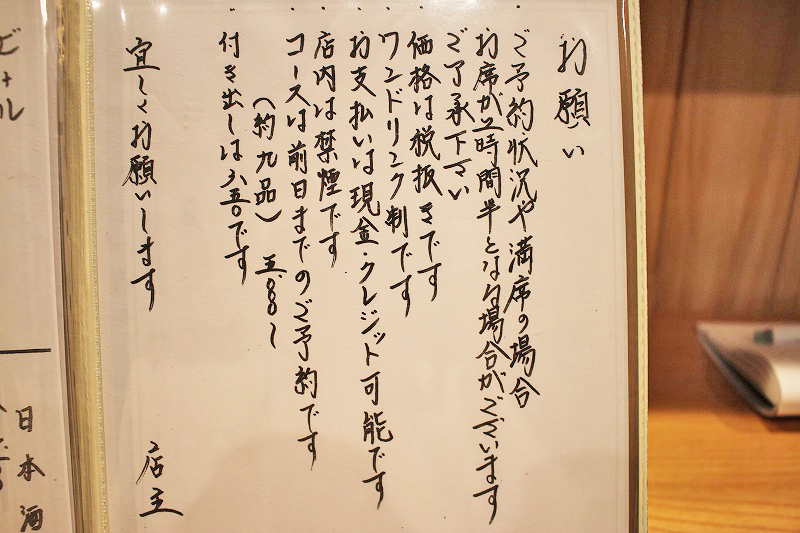 お願い
・ご予約状況や満席の場合
お席が二時間半となる場合がございます
ご了承下さい
・価格は税抜きです
・ワンドリンク制です
・お支払いは現金・クレジット可能です
・店内は禁煙です
・コースは前日までのご予約です
(約九品) 五,〇〇〇〜
・付き出しは六五〇です
宜しくお願いします
店主
ビール
日本酒